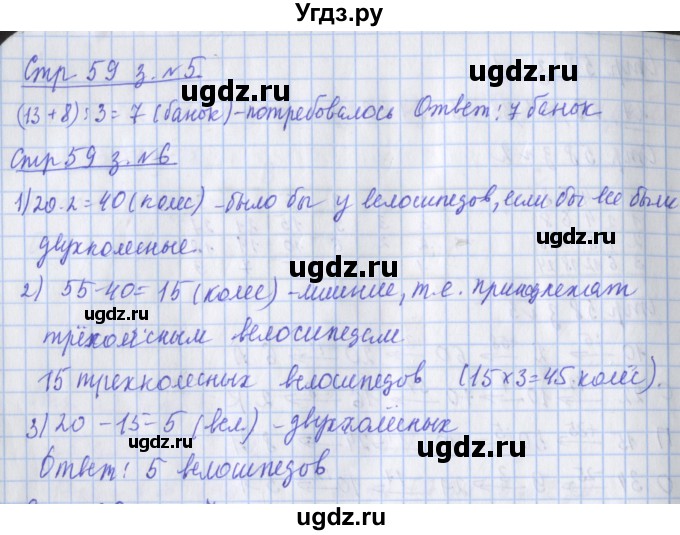 Угдз.ру
Стр 59 з. №5
(13+8):3=7 (банок)-потребовалось Ответ: 7 банок
Стр 59 з. №6
1) 20·2=40 (колес) -было бы у велосипедов, если бы все были
двухколесные.
2) 55-40=15 (колес) -лишние, т.е. принадлежат
трёхколёсным велосипедам
15 трехколесных велосипедов (15×3=45 колес).
3) 20-15-5 (вел) -двухколёсных
Ответ: 5 велосипедов
ugdz.ru
ugdz.ru
ugdz.ru
ugdz.ru
ugdz.ru
ugdz.ru
ugdz.ru
ugdz.ru
ugdz.ru
ugdz.ru
ugdz.ru
ugdz.ru